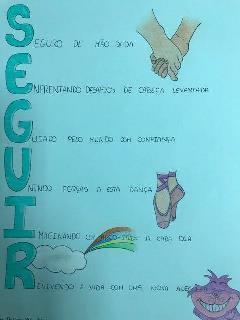 SEGURO DE MÃO DADA
ENFRENTANDO DESAFIOS DE CABEÇA LEVANTADA
GUIADO PELO MUNDO COM CONFIANÇA
UNINDO FORÇAS A ESTA DANÇA
IMAGINANDO UM ARCO-ÍRIS A CADA DIA
REVIVENDO A VIDA COM UMA NOVA ALEGRIA